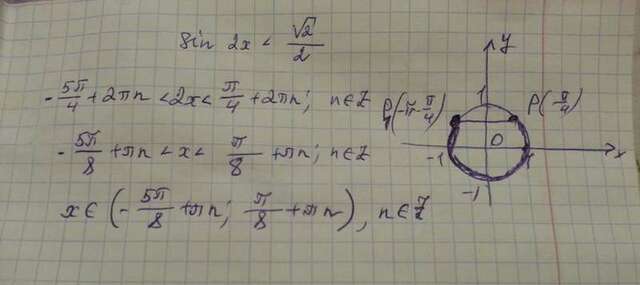 sin 2x < √2/2
-5π/4 + 2πn < 2x < π/4 + 2πn; n∈Z
-5π/8 + πn < x < π/8 + πn; n∈Z
x∈(-5π/8 + πn; π/8 + πn), n∈Z
y
1
P₁(-π-π/4)
P(π/4)
-1
0
1
x
-1